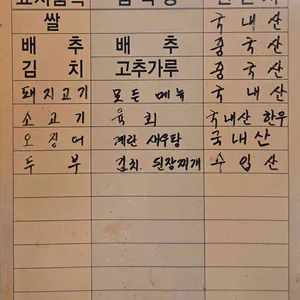 쌀 국내산
배추 배추 중국산
김치 고추가루 중국산
돼지고기 모든 메뉴 국내산
소고기 육회 국내산 한우
오징어 계란 새우탕 국내산
두부 김치. 된장찌개 수입산